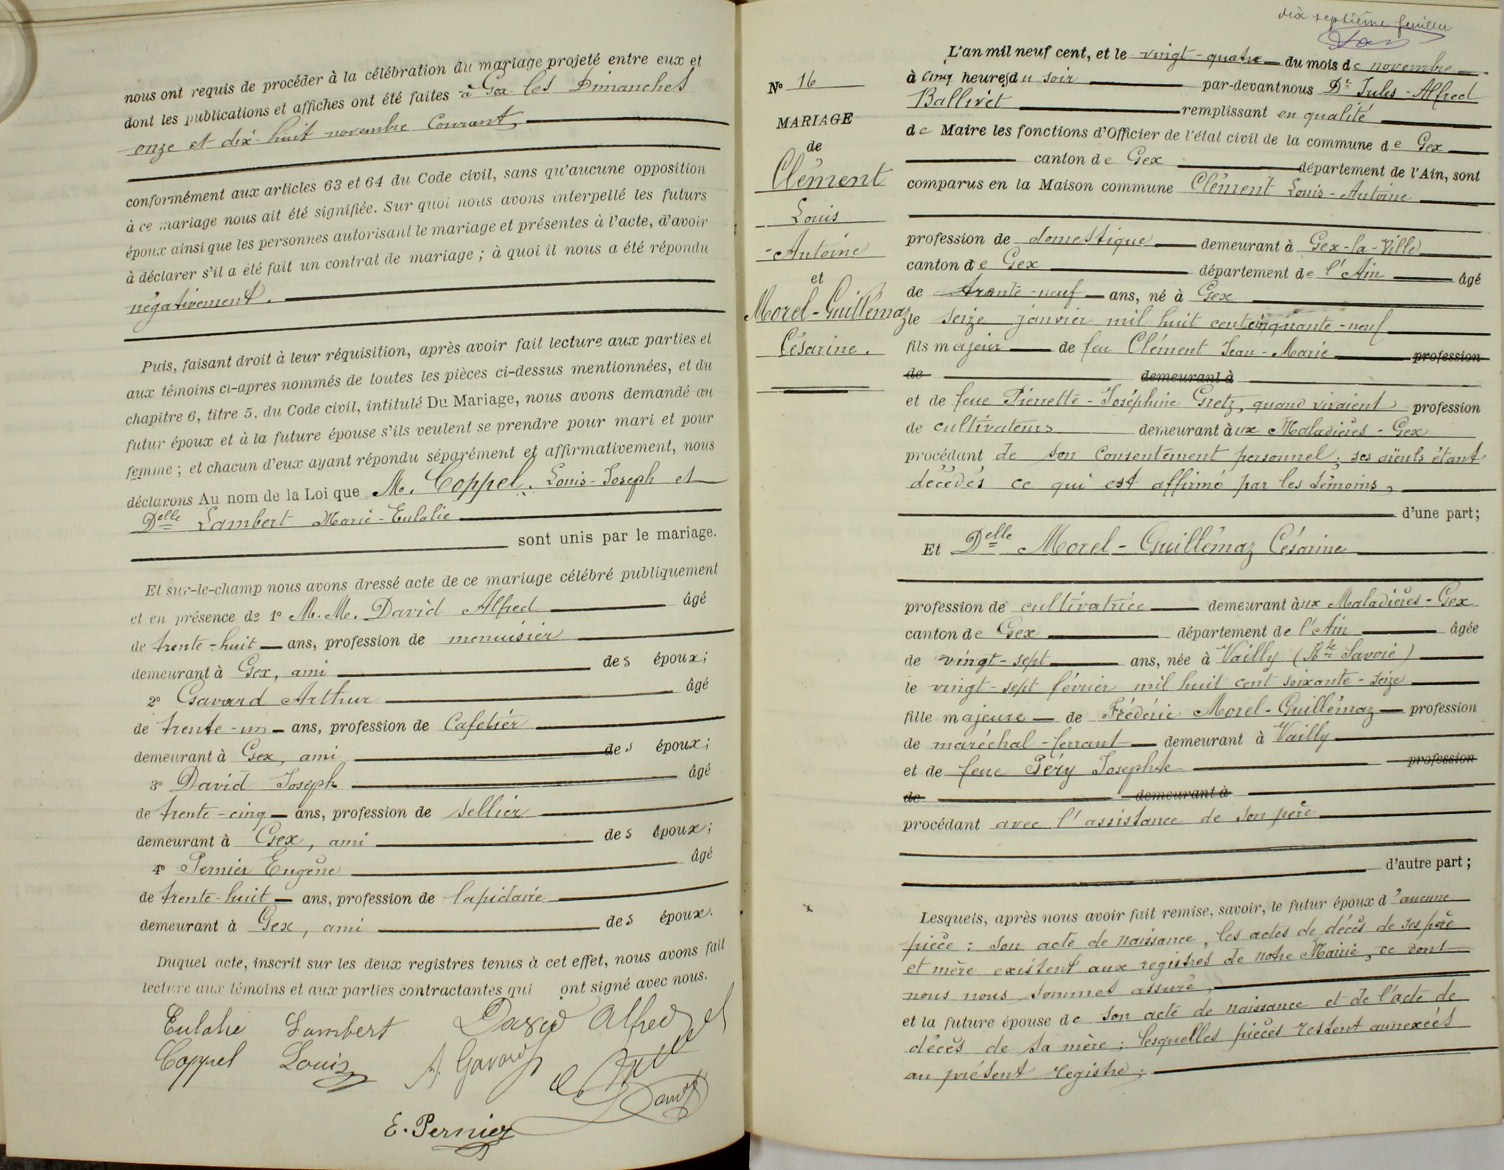 nous ont requis de procéder à la célébration du mariage projeté entre eux et
dont les publications et affiches ont été faites à Gex les Dimanches
onze et dix-huit novembre courant,
conformément aux articles 63 et 64 du Code civil, sans qu'aucune opposition
à ce mariage nous ait été signifiée. Sur quoi nous avons interpellé les futurs
époux ainsi que les personnes autorisant le mariage et présentes à l'acte, d'avoir
à déclarer s'il a été fait un contrat de mariage ; à quoi il nous a été répondu
négativement.
Puis, faisant droit à leur réquisition, après avoir fait lecture aux parties et
aux témoins ci-apres nommés de toutes les pièces ci-dessus mentionnées, et du
chapitre 6, titre 5, du Code civil, intitulé Du Mariage, nous avons demandé au
futur époux et à la future épouse s'ils veulent se prendre pour mari et pour
femme ; et chacun d'eux ayant répondu séparément et affirmativement, nous
déclarons Au nom de la Loi que M. Coppel, Louis-Joseph et
Delle Lambert Marie-Eulalie
sont unis par le mariage.
Et sur-le-champ nous avons dressé acte de ce mariage célébré publiquement
et en présence de 1o M.M. David Alfred âgé
de trente-huit ans, profession de menuisier
demeurant à Gex, ami des époux;
2o Gavard Arthur âgé
de trente-un ans, profession de Cafetier
demeurant à Gex, ami des époux;
3o David Joseph âgé
de trente-cinq ans, profession de sellier
demeurant à Gex, ami des époux;
4o Pernier Eugène âgé
de trente-huit ans, profession de lapidaire
demeurant à Gex, ami des époux.
Duquel acte, inscrit sur les deux registres tenus à cet effet, nous avons fait
lecture aux témoins et aux parties contractantes qui ont signé avec nous.
Eulalie Lambert David Alfred
Coppel Louis A. Gavard
David
E. Pernier
dix septième feuillet
No 16
MARIAGE
de
Clément
Louis
-Antoine
et
Morel-Guillemaz
Césarine.
L'an mil neuf cent, et le vingt-quatre du mois de novembre
à cinq heures du soir par-devant nous Dr Jules-Alfred
Ballivet remplissant en qualité
de Maire les fonctions d'Officier de l'état civil de la commune de Gex
canton de Gex département de l'Ain, sont
comparus en la Maison commune Clément Louis-Antoine
profession de domestique demeurant à Gex-la-Ville
canton de Gex département de l'Ain âgé
de trente-neuf ans, né à Gex
le seize janvier mil huit cent cinquante-neuf
fils majeur de feu Clément Jean-Marie profession
de demeurant à
et de feue Pierrette-Joséphine Gretz, quand vivaient profession
de cultivateurs demeurant aux Maladières-Gex
procédant de son consentement personnel; ses aïeuls étant
décédés ce qui est affirmé par les témoins,
d'une part;
Et Delle Morel-Guillemaz Césarine
profession de cultivatrice demeurant aux Maladières-Gex
canton de Gex département de l'Ain âgée
de vingt-sept ans, née à Vailly (Hte Savoie)
le vingt-sept février mil huit cent soixante-seize
fille majeure de Frédéric Morel-Guillemaz profession
de maréchal-ferrant demeurant à Vailly
et de feue Péry Josephte profession
de demeurant à
procédant avec l'assistance de son père
d'autre part;
Lesquels, après nous avoir fait remise, savoir, le futur époux d'aucune
pièce : son acte de naissance, les actes de décès de ses père
et mère existent aux registres de notre Mairie, ce dont
nous nous sommes assuré,
et la future épouse de son acte de naissance et de l'acte de
décès de sa mère : lesquelles pièces restent annexées
au présent registre;